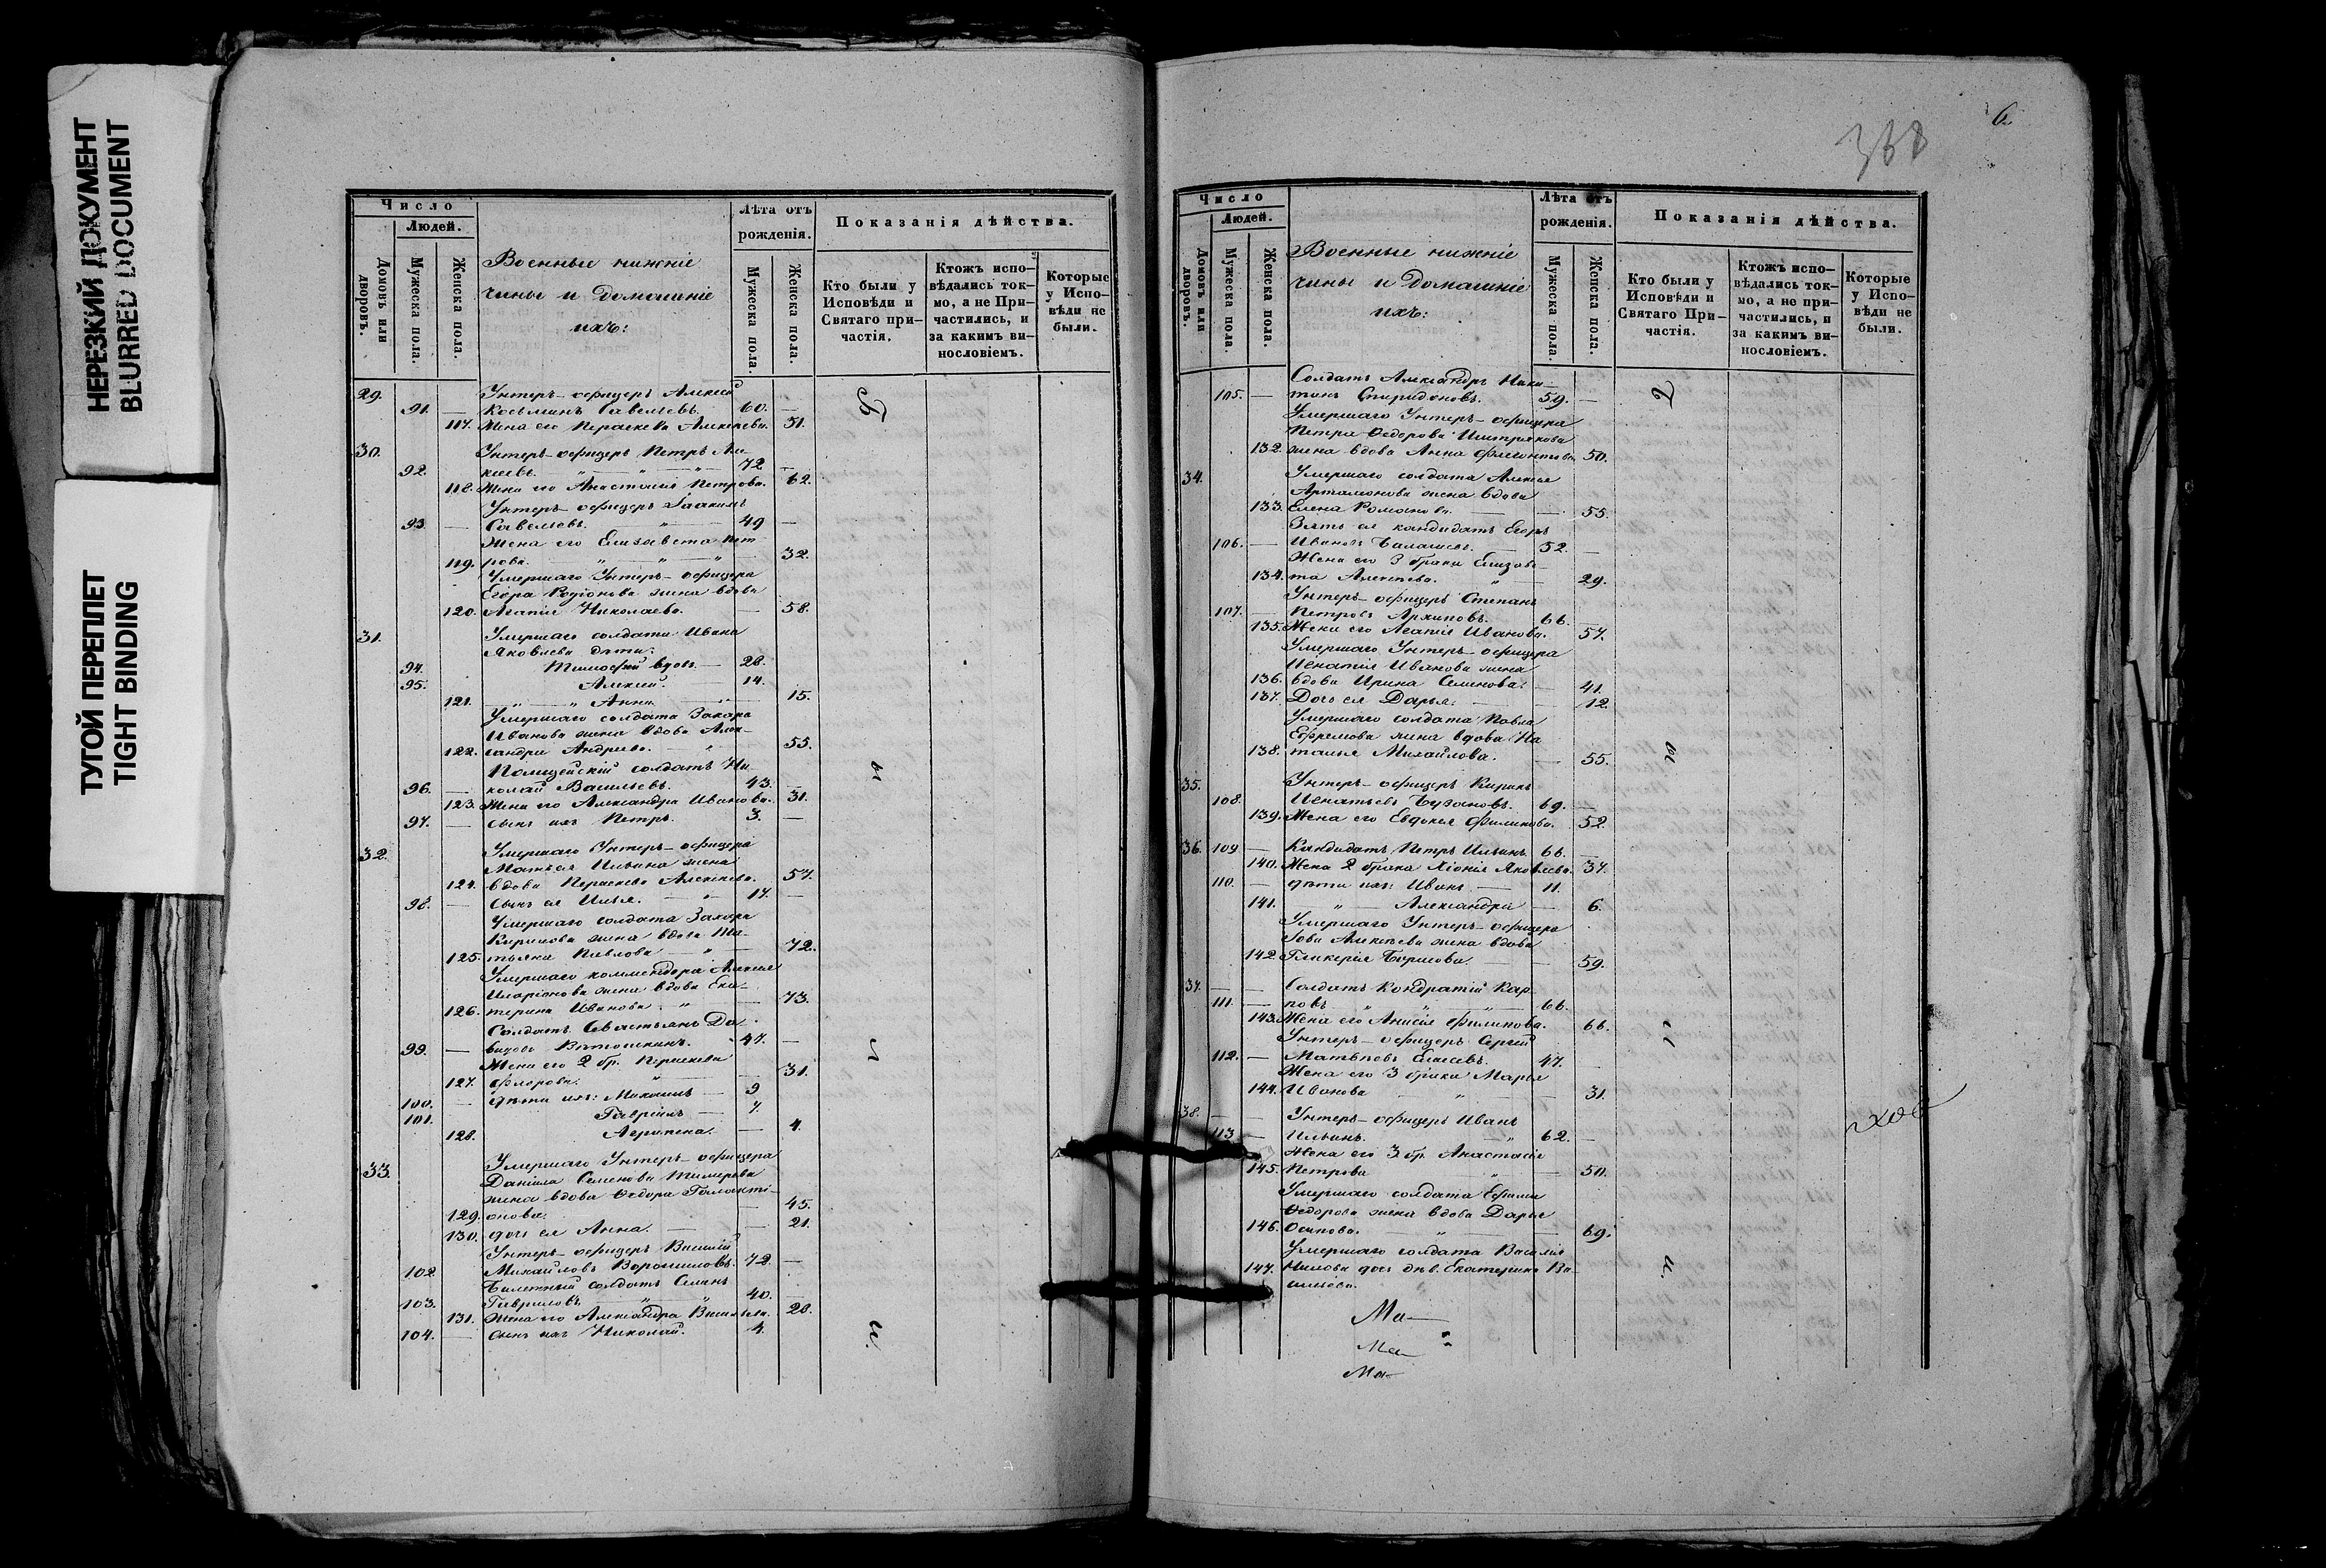 НЕРЕЗКИЙ ДОКУМЕНТ
BLURRED DOCUMENT
ТУГОЙ ПЕРЕПЛЕТ
TIGHT BINDING
Число
Людей.
Домовъ или дворовъ.
Мужеска пола.
Женска пола.
Военные нижніе
чины и домашніе
ихъ:
Лѣта отъ рожденія.
Мужеска пола.
Женска пола.
Показанія дѣйства.
Кто были у Исповѣди и Святаго при-частія.
Ктожъ испо-вѣдались ток-мо, а не При-частились, и за какимъ ви-нословіемъ.
Которые у Испо-вѣди не были.
29. Унтеръ-офицеръ Алексѣй
91. — Косьминъ Савельевъ. 60. —
117. Жена его Параскева Алексѣева. 51.
30. Унтеръ-офицеръ Петръ Але-
92. ксѣевъ. 72 —
118. Жена его Анастасія Петрова. 62.
Унтеръ-офицеръ Іоакимъ
93. — Савельевъ. 49 —
Жена его Елизавета Пет-
119. рова. 32.
Умершаго Унтеръ-офицера
Егора Родіонова жена вдова
120. Агапія Николаева. — 58.
31. Умершаго солдата Ивана
Яковлева дѣти:
94. Тимофей вдов. — 28.
95. Алексѣй. — 14.
121. Анна. 15.
Умершаго солдата Захара
Иванова жена вдова Алек-
122. сандра Андреева. 55.
Полицейскій солдатъ Ни-
96. — колай Васильевъ. 43. —
123. Жена его Александра Иванова. 31.
97. — сынъ ихъ Петръ. 3. —
32. Умершаго Унтеръ-офицера
Матвея Ильина жена
124. вдова Параскева Алексѣева. 57.
98. — сынъ ея Илья. 17. —
Умершаго солдата Захара
Кирилова жена вдова Та-
125. тьяна Павлова. 72.
Умершаго Алексѣя
Иларіонова жена вдова Ека-
126. терина Иванова. 73.
Солдатъ Савастьянъ Да-
99. — видовъ 47. —
Жена его 2 бр. Параскева
127. Флорова. 31.
100. — дѣти ихъ: Михаилъ — 9
101. Гавріилъ — 7.
128. Агрипена. — 4.
33. Умершаго Унтеръ-офицера
Даніила Семенова
жена вдова Ѳедора Галакті-
129. онова. 45.
130. дочь ея Анна. — 21.
Унтеръ-офицеръ Василій
102. Михайловъ Ворошиловъ. 72. —
Билетный солдатъ Семенъ
103. Гавриловъ 40. —
131. Жена его Александра Васильева. 28.
104. — сынъ ихъ Николай. 4.
368
6
Число
Людей.
Домовъ или дворовъ.
Мужеска пола.
Женска пола.
Военные нижніе
чины и домашніе
ихъ:
Лѣта отъ рожденія.
Мужеска пола.
Женска пола.
Показанія дѣйства.
Кто были у Исповѣди и Святаго При-частія.
Ктожъ испо-вѣдались ток-мо, а не при-частились, и за какимъ ви-нословіемъ.
Которые у Испо-вѣди не были.
Солдатъ Александръ Ники-
105. — тинъ Спиридоновъ. 59. —
Умершаго Унтеръ-офицера
Петра Ѳедорова
132. жена вдова Анна 50.
34. Умершаго солдата Алексѣя
Артамонова жена вдова
133. Елена Романова. 55.
Зять ея кандидатъ Егоръ
106. — Ивановъ Балашевъ. 52. —
Жена его 3 брака Елизаве-
134. та Алексѣева. 29.
Унтеръ-офицеръ Степанъ
107. — Петровъ Архиповъ. 66. —
135. Жена его Агапія Иванова. 57.
Умершаго Унтеръ-офицера
Игнатія Иванова жена
136. вдова Ирина Семенова. — 41.
137. Дочь ея Дарья. 12.
Умершаго солдата Павла
Ефремова жена вдова На-
138. талья Михайлова. 55.
35. Унтеръ-офицеръ Кирилъ
108. Игнатьевъ Бузановъ. 69. —
139. Жена его Евдокея Филипова. 52.
36. 109 — Кандидатъ Петръ Ильинъ. 66. —
140. Жена 2 брака Хіонія Яковлева. 37.
110. — дѣти ихъ: Иванъ. — 11.
141. Александра — 6.
Умершаго Унтеръ-офицера
Іова Алексѣева жена вдова
142 Гликерія Борисова. 59.
37. Солдатъ Кондратій Кар-
111. — повъ 66.
143. Жена его Анисія Филипова. 66.
Унтеръ-офицеръ Сергей
112. — Матвѣевъ Елисевъ. 47.
Жена его 3 брака Марья
144. Иванова 31.
38. Унтеръ-офицеръ Иванъ
113 — Ильинъ. 62. —
Жена его 3 бр. Анастасія
145. Петрова 50.
Умершаго солдата Ефима
Ѳедорова жена вдова Дарья
146. Осипова. 69.
Умершаго солдата Василія
147. Нилова дочь дѣв. Екатерина Ва-
сильева.
Ма—
Ма—
Ма—